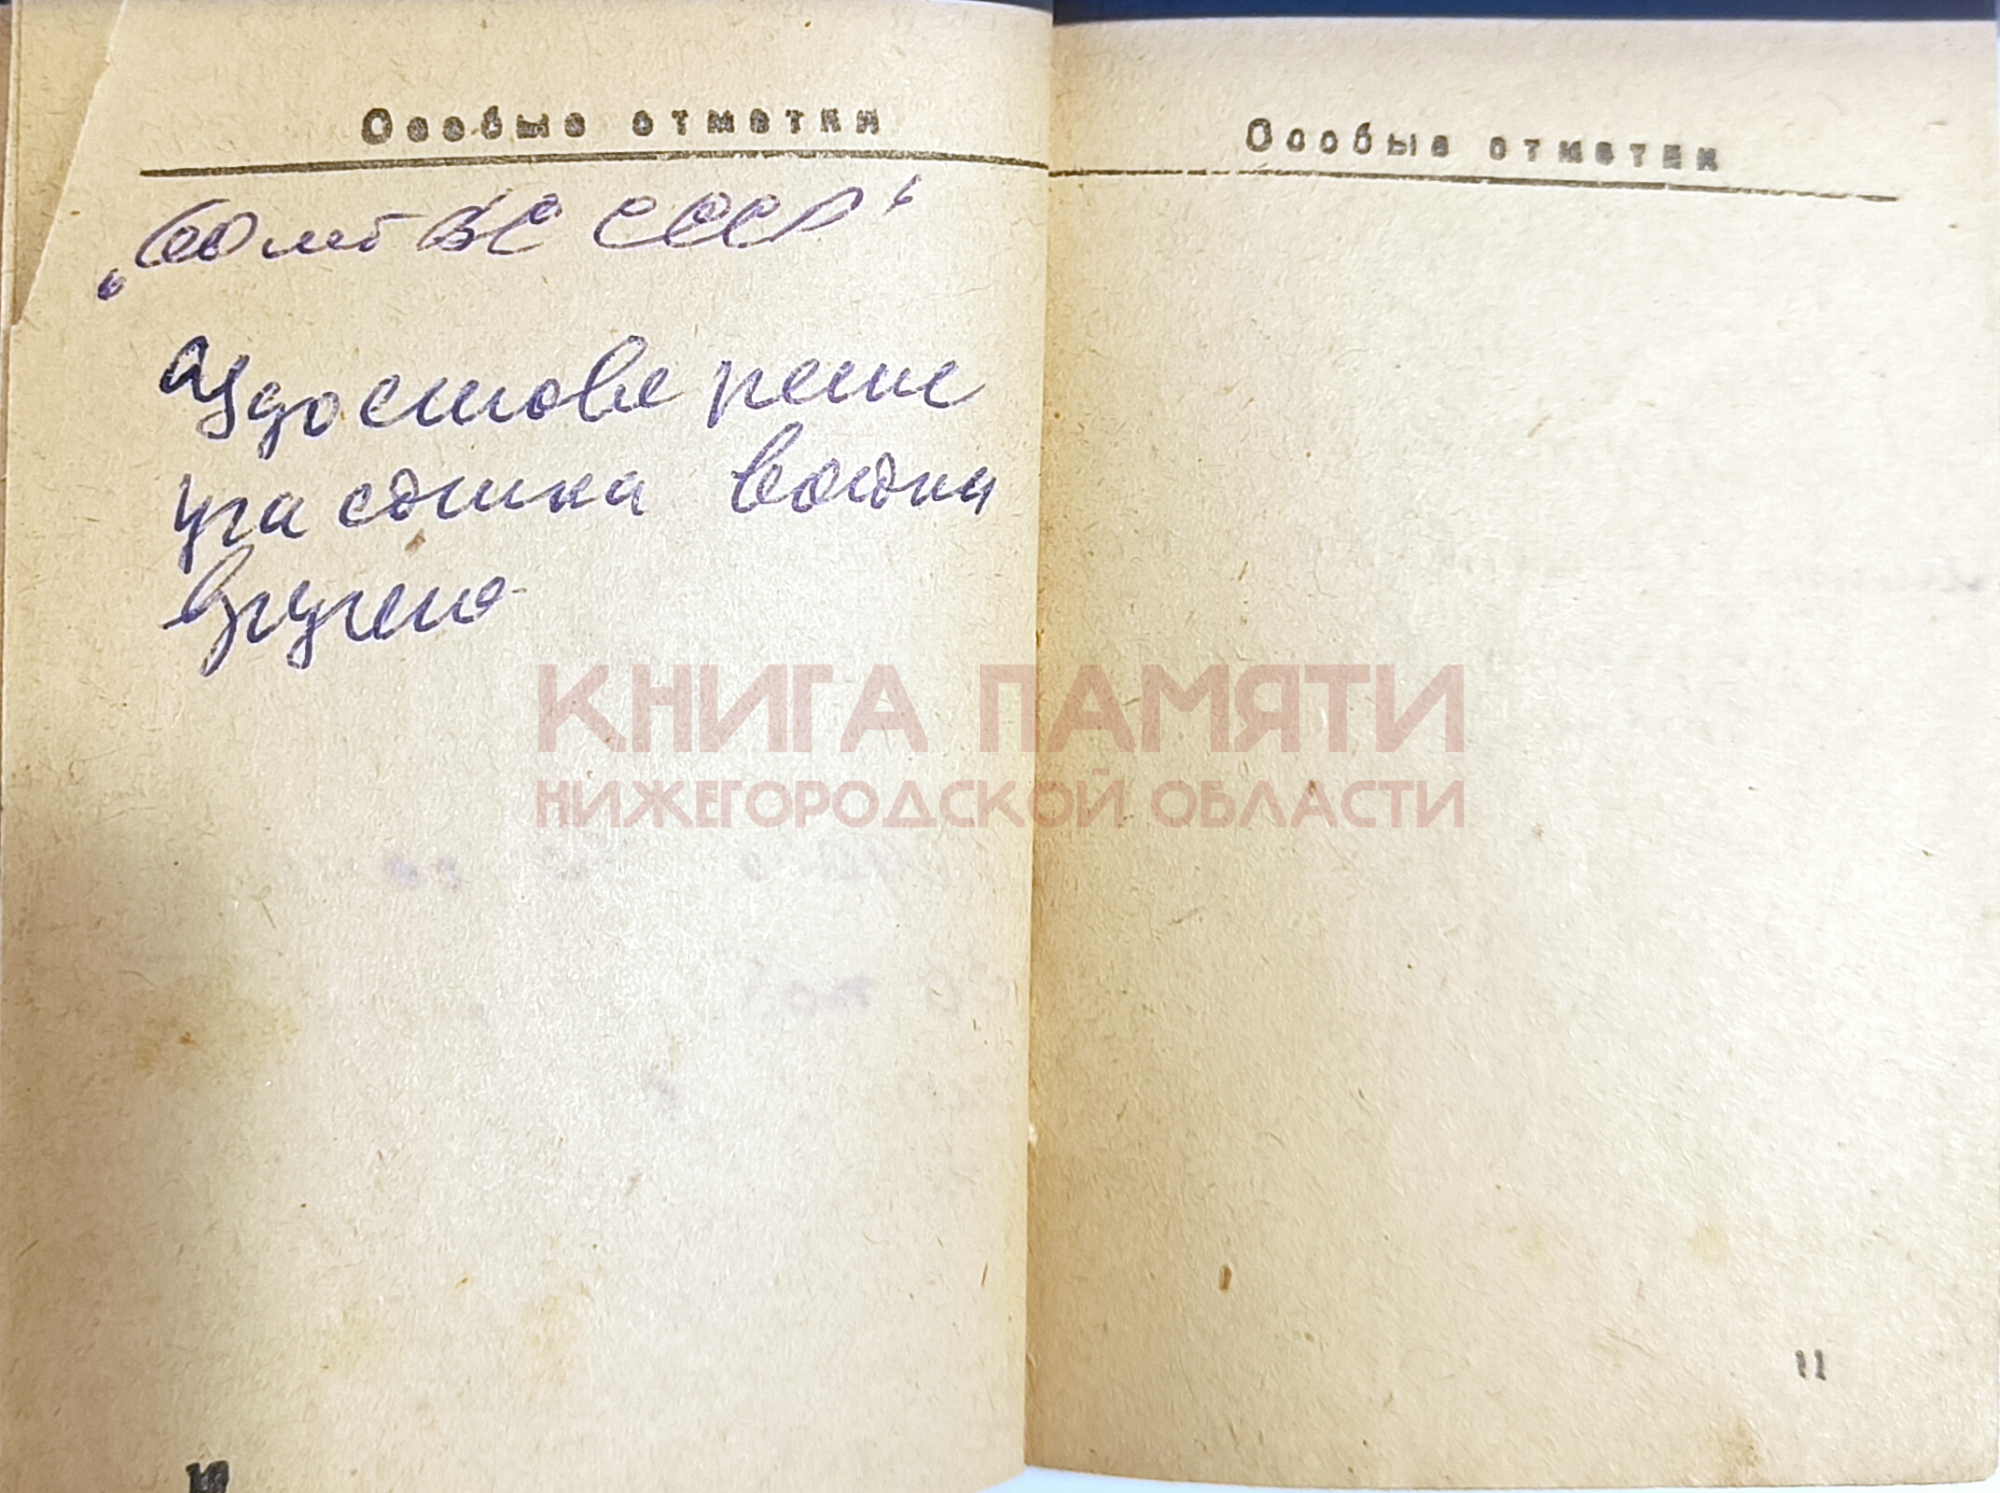 Особые отметки
„60 лет ВС СССР“
Удостоверение
участника войны
вручено
10
Особые отметки
11
КНИГА ПАМЯТИ
НИЖЕГОРОДСКОЙ ОБЛАСТИ